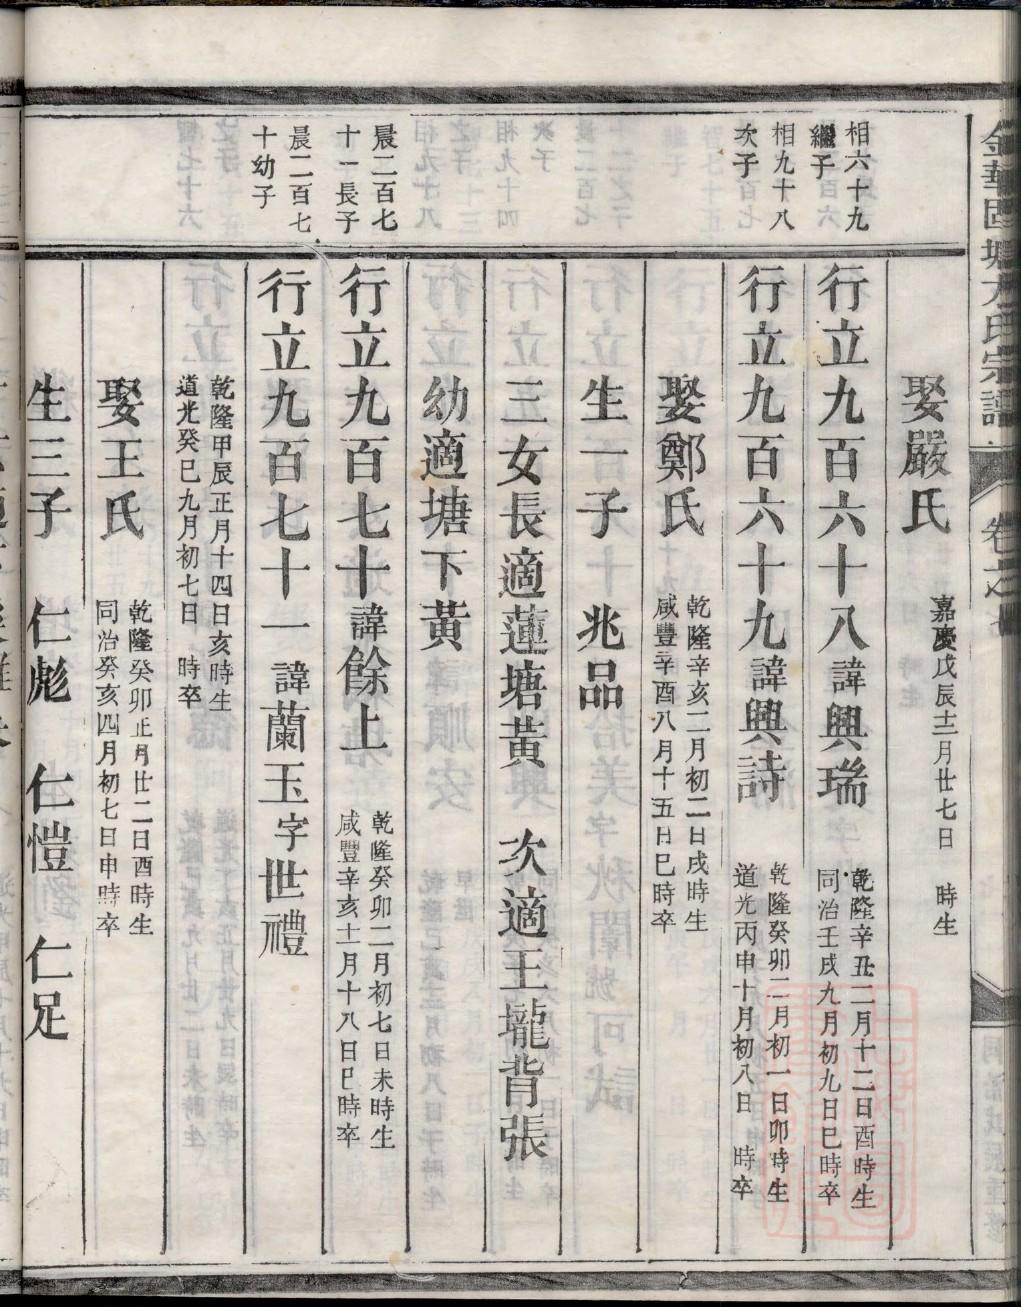 娶嚴氏
嘉慶戊辰十二月廿七日 時生
相六十九
繼子
行立九百六十八諱興瑞
乾隆辛丑二月十二日酉時生
同治壬戌九月初九日巳時卒
相九十八
次子
行立九百六十九諱興詩
乾隆癸卯二月初一日卯時生
道光丙申十月初八日 時卒
娶鄭氏
乾隆辛亥二月初二日戌時生
咸豐辛酉八月十五日巳時卒
生一子 兆品
三女長適蓮塘黃 次適王壠背張
幼適塘下黃
晨二百七
十一長子
行立九百七十諱餘上
乾隆癸卯二月初七日未時生
咸豐辛亥十一月十八日巳時卒
晨二百七
十幼子
行立九百七十一諱蘭玉字世禮
乾隆甲辰正月十四日亥時生
道光癸巳九月初七日 時卒
娶王氏
乾隆癸卯正月廿二日酉時生
同治癸亥四月初七日申時卒
生三子 仁彪 仁愷 仁足